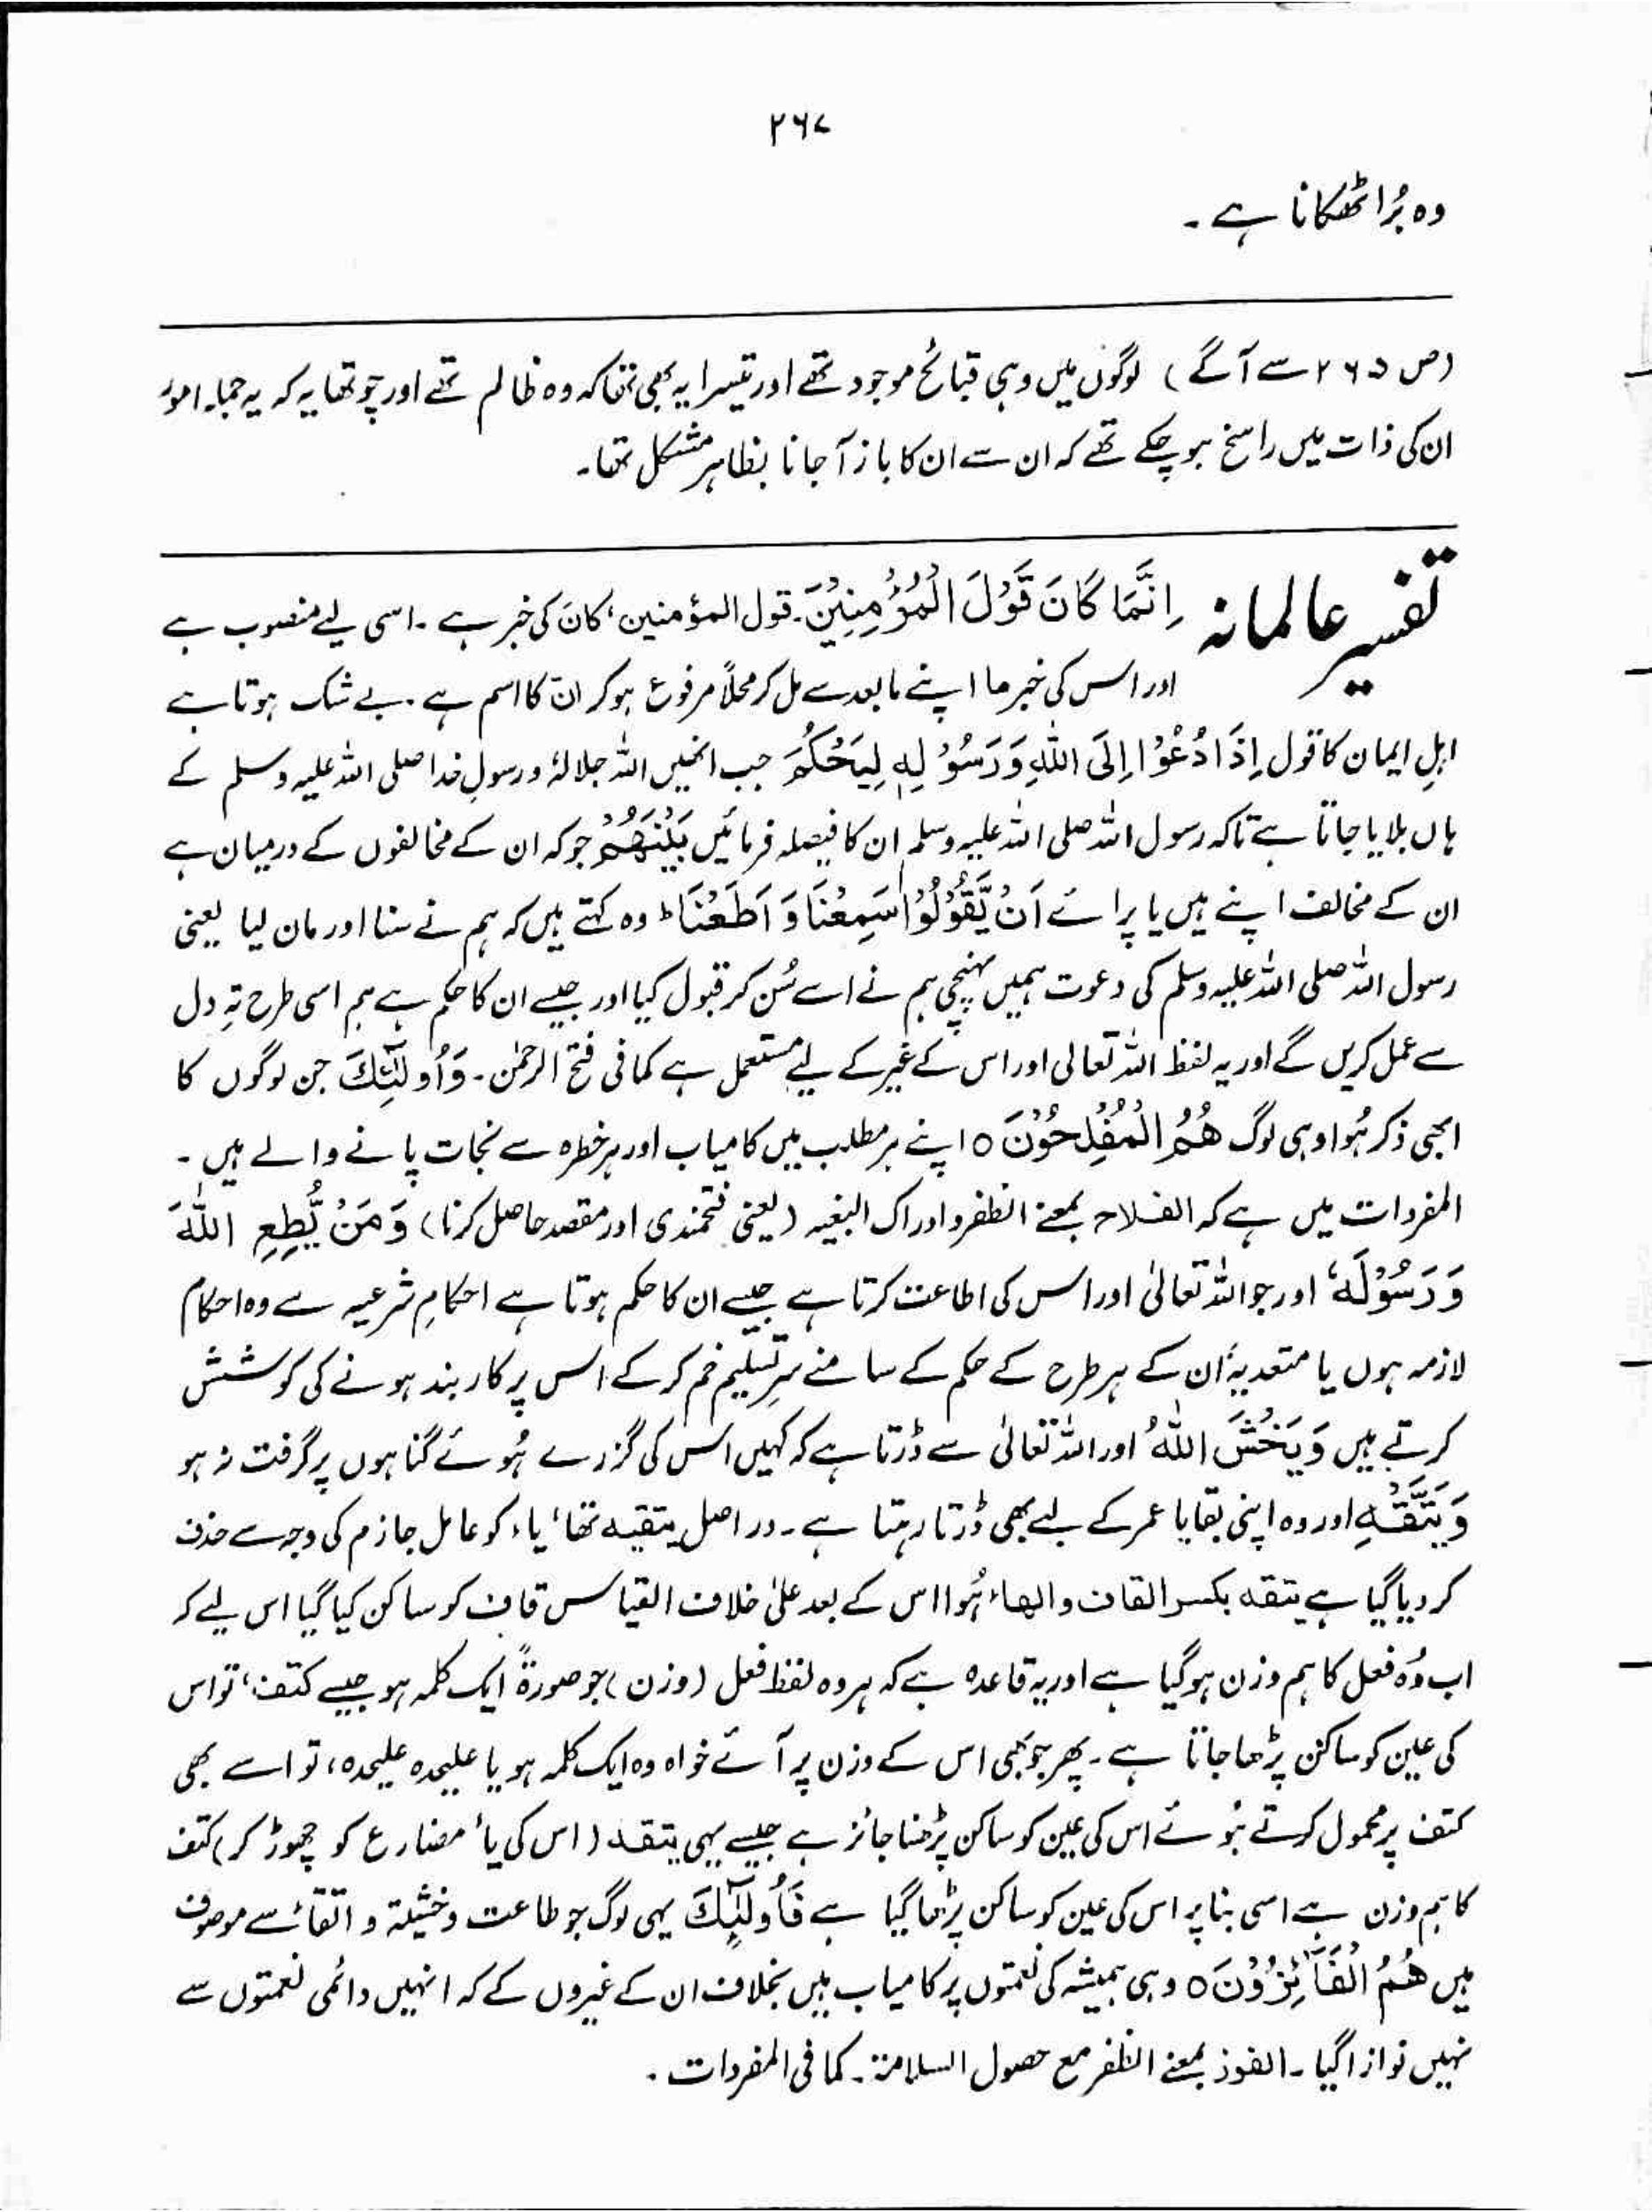 ۲۶۷
وہ بُرا ٹھکانا ہے ۔
(ص ۲۶۵ سے آگے) لوگوں میں وہی قبائح موجود تھے اور تیسرا یہ بھی تھا کہ وہ ظالم تھے اور چوتھا یہ کہ یہ جملہ امور
ان کی ذات میں راسخ ہو چکے تھے کہ ان سے ان کا باز آ جانا بظاہر مشکل تھا۔
تفسیر عالمانہ اِنَّمَا كَانَ قَوْلَ الْمُؤْمِنِيْنَ۔ قول المؤمنین، کان کی خبر ہے ۔ اسی لیے منصوب ہے
اور اس کی خبر ما اپنے مابعد سے مل کر محلاً مرفوع ہو کر انّ کا اسم ہے ۔ بے شک ہوتا ہے
اہلِ ایمان کا قول اِذَا دُعُوْا اِلَى اللّٰهِ وَرَسُوْلِهٖ لِيَحْكُمَ جب انھیں اللہ جلالہٗ و رسولِ خدا صلی اللہ علیہ وسلم کے
ہاں بلایا جاتا ہے تاکہ رسول اللہ صلی اللہ علیہ وسلم ان کا فیصلہ فرمائیں بَيْنَهُمْ جو کہ ان کے مخالفوں کے درمیان ہے
ان کے مخالف اپنے ہیں یا پرائے اَنْ يَّقُوْلُوْا سَمِعْنَا وَ اَطَعْنَا ؕ وہ کہتے ہیں کہ ہم نے سنا اور مان لیا یعنی
رسول اللہ صلی اللہ علیہ وسلم کی دعوت ہمیں پہنچی ہم نے اسے سُن کر قبول کیا اور جیسے ان کا حکم ہے ہم اسی طرح تہِ دل
سے عمل کریں گے اور یہ لفظ اللہ تعالی اور اس کے غیر کے لیے مستعمل ہے کما فی فتح الرحمٰن ۔ وَاُولٰٓئِكَ جن لوگوں کا
ابھی ذکر ہُوا وہی لوگ هُمُ الْمُفْلِحُوْنَ ○ اپنے ہر مطلب میں کامیاب اور ہر خطرہ سے نجات پانے والے ہیں ۔
المفردات میں ہے کہ الفلاح بمعنے الظفر و ادراک البغیہ (یعنی فتحمندی اور مقصد حاصل کرنا) وَمَنْ يُّطِعِ اللّٰهَ
وَرَسُوْلَهٗ اور جو اللہ تعالیٰ اور اس کی اطاعت کرتا ہے جیسے ان کا حکم ہوتا ہے احکامِ شرعیہ سے وہ احکام
لازمہ ہوں یا متعدیہ ان کے ہر طرح کے حکم کے سامنے سرِ تسلیم خم کر کے اس پر کاربند ہونے کی کوشش
کرتے ہیں وَيَخْشَ اللّٰهُ اور اللہ تعالیٰ سے ڈرتا ہے کہ کہیں اس کی گزرے ہُوئے گناہوں پر گرفت نہ ہو
وَيَتَّقْهِ اور وہ اپنی بقایا عمر کے لیے بھی ڈرتا رہتا ہے ۔ در اصل یتقیہ تھا، یاء کو عامل جازم کی وجہ سے حذف
کر دیا گیا ہے یتقہ بکسر القاف والھاء ہُوا اس کے بعد علیٰ خلاف القیاس قاف کو ساکن کیا گیا اس لیے کہ
اب وُہ فعل کا ہم وزن ہو گیا ہے اور یہ قاعدہ ہے کہ ہر وہ لفظ فعل (وزن) جو صورۃً ایک کلمہ ہو جیسے کتف، تو اس
کی عین کو ساکن پڑھا جاتا ہے ۔ پھر جو بھی اس کے وزن پر آئے خواہ وہ ایک کلمہ ہو یا علیحدہ علیحدہ، تو اسے بھی
کتف پر محمول کرتے ہُوئے اس کی عین کو ساکن پڑھنا جائز ہے جیسے یہی یتقہ (اس کی یائے مضارع کو چھوڑ کر) کتف
کا ہم وزن ہے اسی بنا پر اس کی عین کو ساکن پڑھا گیا ہے فَاُولٰٓئِكَ یہی لوگ جو طاعت و خشیۃ و اتقاء سے موصوف
ہیں هُمُ الْفَآئِزُوْنَ ○ وہی ہمیشہ کی نعمتوں پر کامیاب ہیں بخلاف ان کے غیروں کے کہ انہیں دائمی نعمتوں سے
نہیں نوازا گیا ۔ الفوز بمعنے الظفر مع حصول السلامۃ ۔ کما فی المفردات ۔